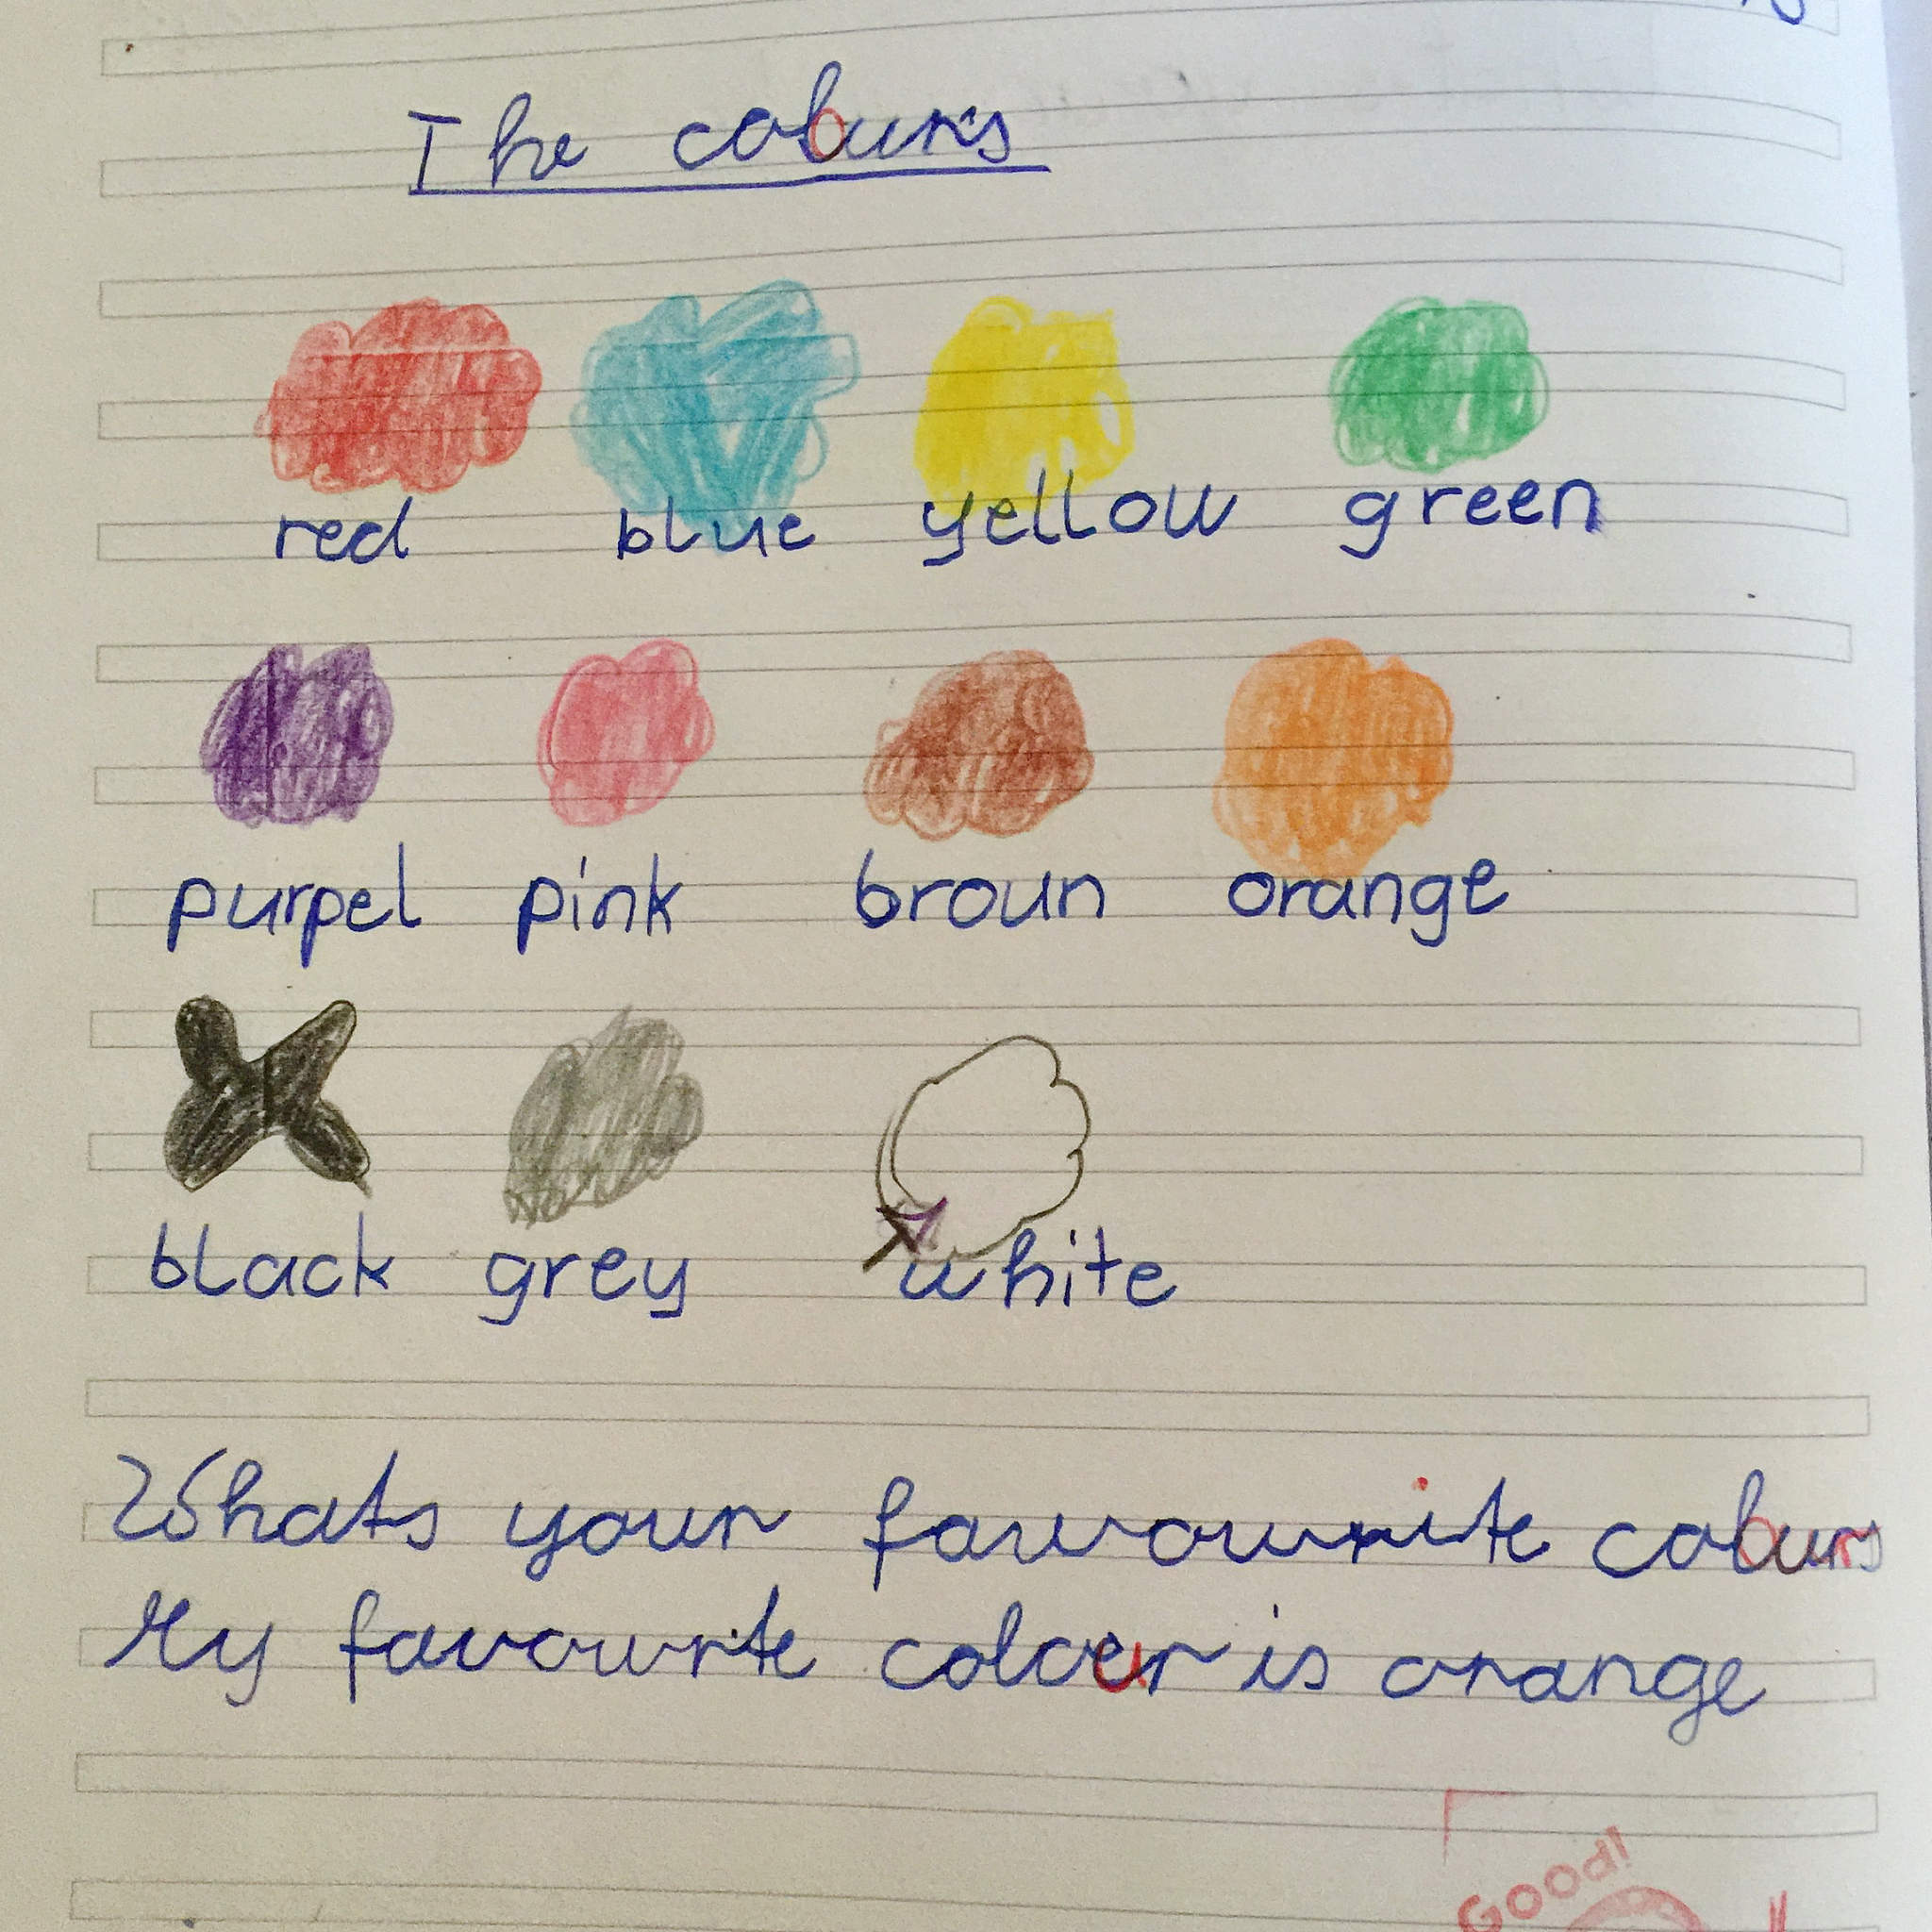 The colours
red blue yellow green
purpel pink broun orange
black grey white
Whats your favourite colours
My favourite colour is orange
Good!